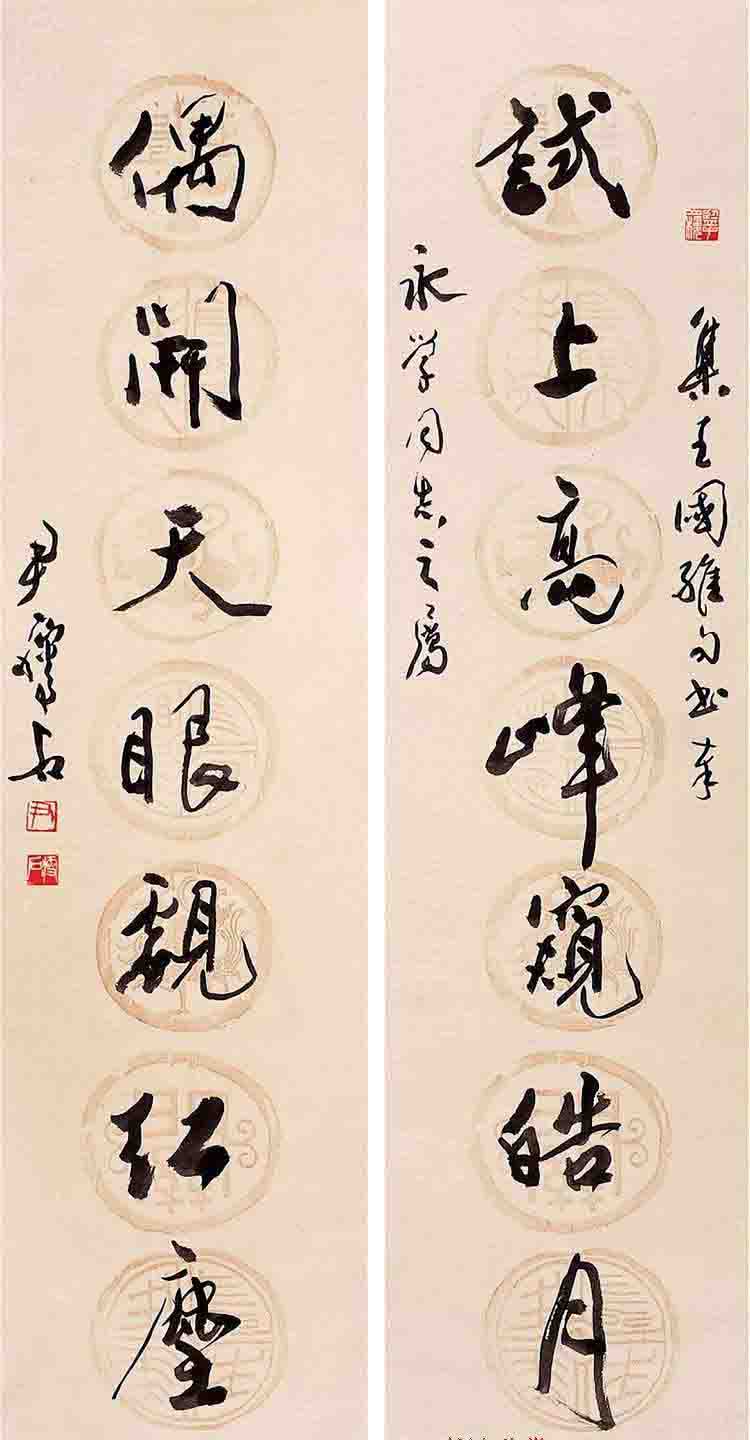 試上高峰窺皓月
集王國維句書奉
永学同志之屬
偶開天眼覷紅塵
尹瘦石
尹